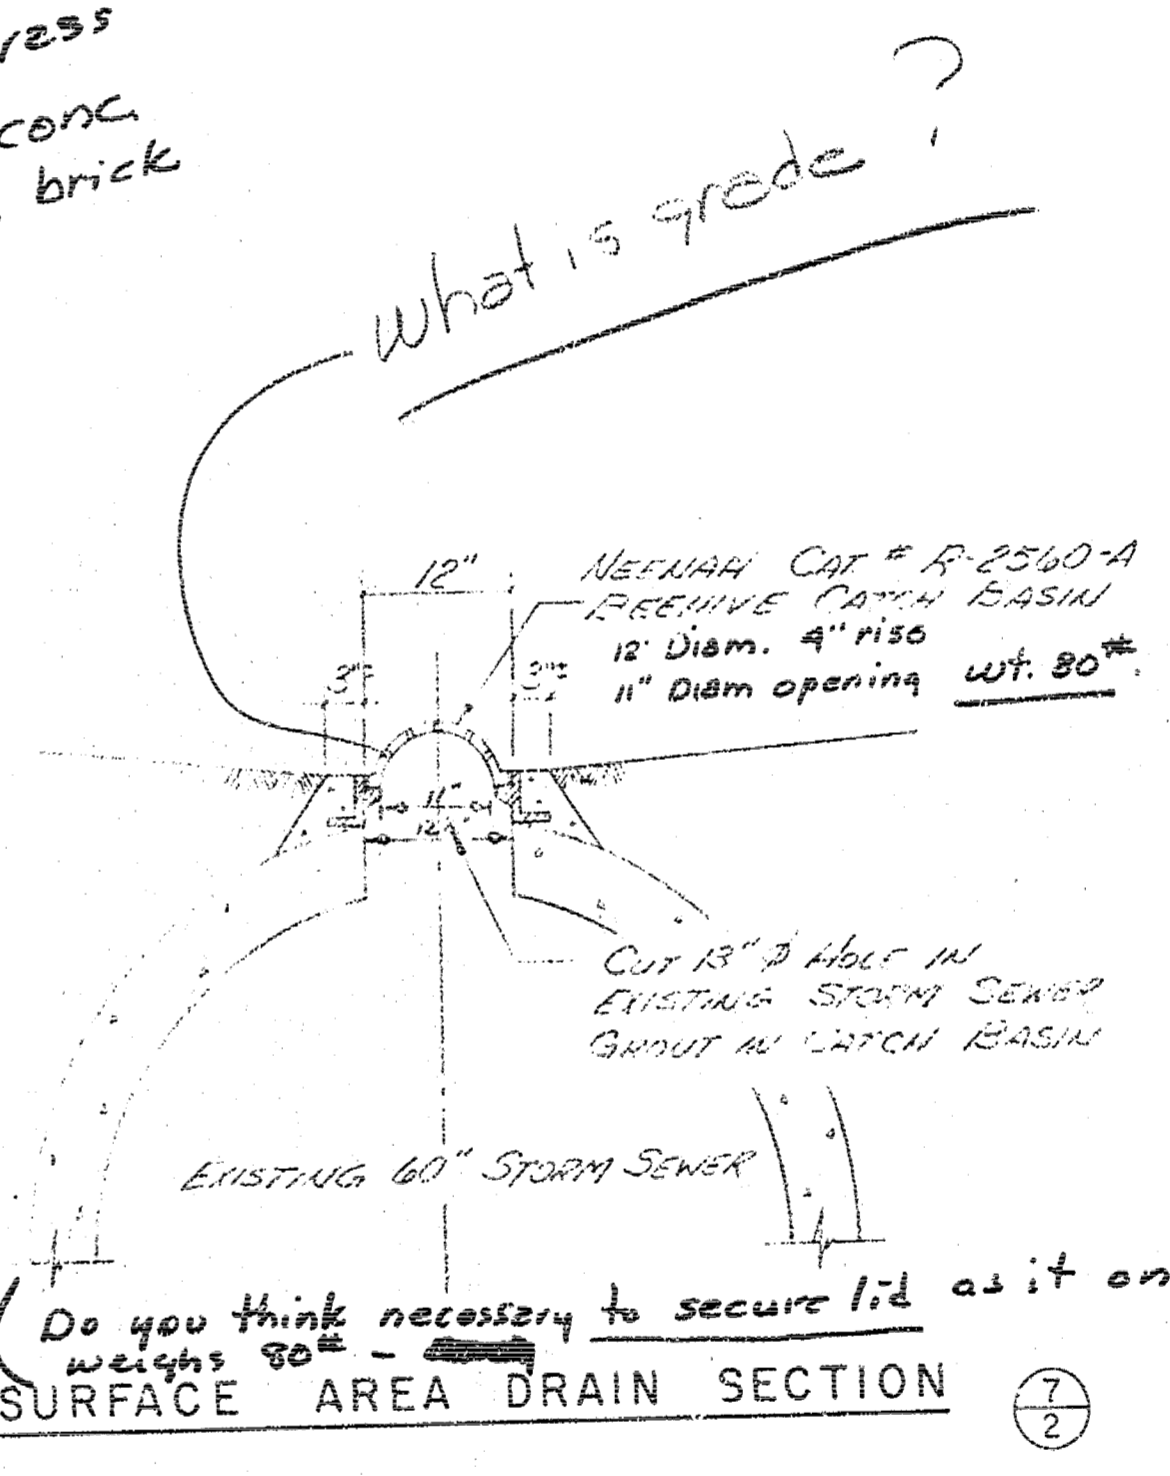 conc
brick
What is grade ?
12"
NEENAH CAT. # R-2560-A
BEEHIVE CATCH BASIN
12" Diam. 4" rise
11" Diam opening wt. 80#.
3"±
3"±
11"
12"
CUT 13" Ø HOLE IN
EXISTING STORM SEWER
GROUT IN CATCH BASIN
EXISTING 60" STORM SEWER
Do you think necessary to secure lid as it on
weighs 80# -
SURFACE AREA DRAIN SECTION
7
2